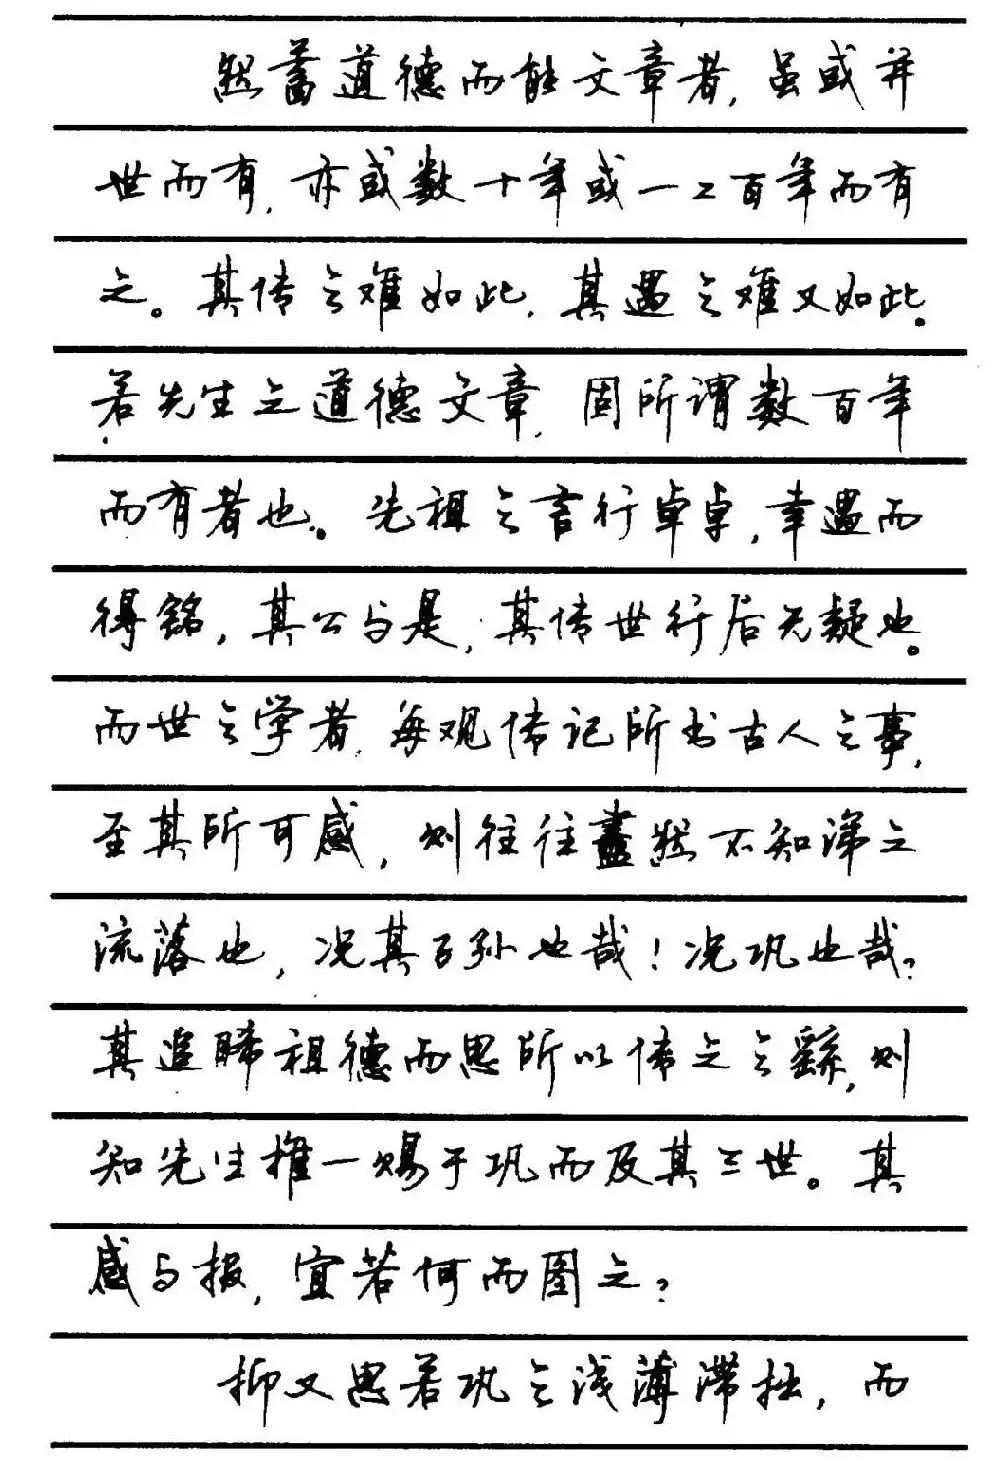 然蓄道德而能文章者，虽或并
世而有，亦或数十年或一二百年而有
之。其传之难如此，其遇之难又如此。
若先生之道德文章，固所谓数百年
而有者也。先祖之言行卓卓，幸遇而
得铭，其公与是，其传世行后无疑也。
而世之学者，每观传记所书古人之事，
至其所可感，则往往衋然不知涕之
流落也，况其子孙也哉！况巩也哉？
其追睎祖德而思所以传之之繇，则
知先生推一赐于巩而及其三世。其
感与报，宜若何而图之？
抑又思若巩之浅薄滞拙，而